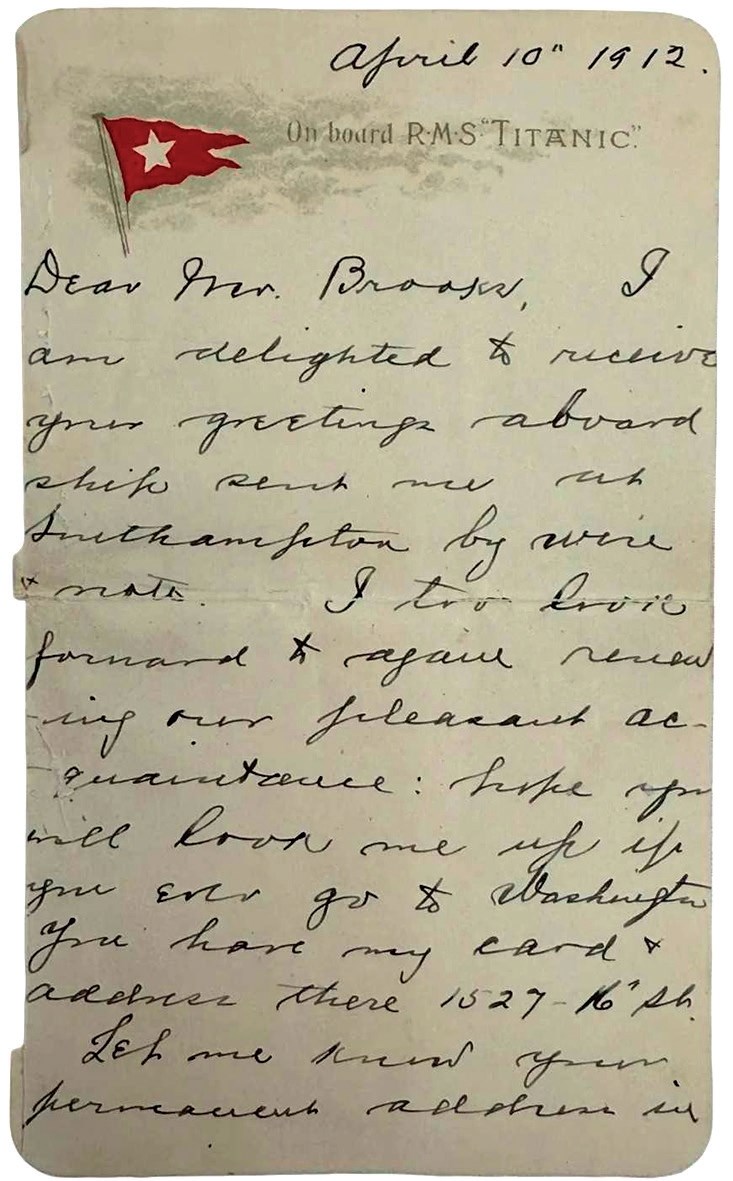 April 10" 1912.
On board R·M·S. "TITANIC."
Dear Mr. Brooks, I
am delighted to receive
your greetings aboard
ship sent me at
Southampton by wire
& note. I too look
forward to again renew
-ing our pleasant ac-
-quaintance: hope you
will look me up if
you ever go to Washington
You have my card &
address there 1527 - 16" St.
Let me know your
permanent address in